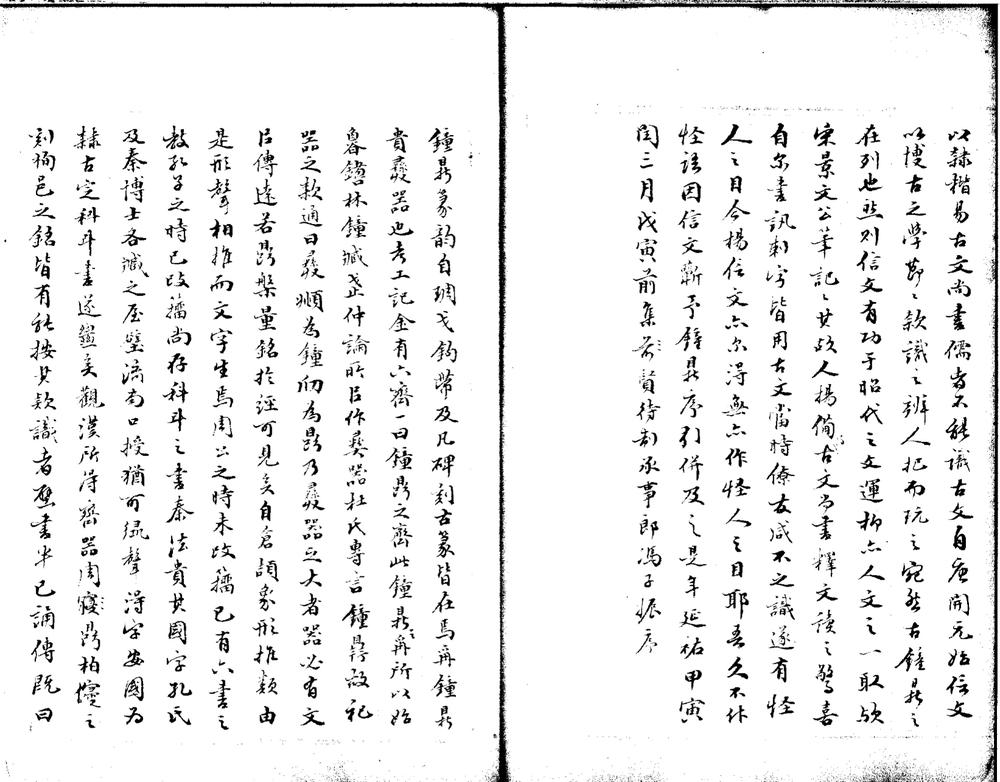 以隸楷易古文尚書儒者不能識古文自唐開元始信文
以博古之學勤〻款識之辨人把而玩之宛然古鐘鼎之
在列也然則信文有功于昭代之文運抑亦人文之一取歟
宋景文公筆記〻其故人楊備古文尚書釋文讀之驚喜
自尓書訊刺字皆用古文當時僚友咸不之識遂有怪
人之目今楊信文亦尓得無亦作怪人之目耶吾久不作
怪語因信文蘄予鐘鼎序引併及之是年延祐甲寅
閏三月戊寅前集賢待制承事郎馮子振序
鐘鼎篆韵自琱戈鈎帶及凡碑刻古篆皆在焉冓鐘鼎
貴彞器也考工記金有六齊一曰鐘鼎之齊此鐘鼎冓所以始
魯鑄林鐘臧武仲論所㠯作彞器杜氏專言鐘鼎故祀
器之款通曰彞㼽為鐘仞為鼎乃彞器之大者器必有文
㠯傳遠若鼎槃量銘於經可見矣自倉頡象形推類由
是形聲相推而文字生焉周公之時未改籀已有六書之
教孔子之時已改籀尚存科斗之書秦法貴其國字孔氏
及秦博士各藏之屋壁濟南口授猶可緣聲得字安國為
隸古定科斗書遂廢矣觀漢所得齊器周寢鼎柏寢之
刻栒邑之銘皆有能按其款識者歷書半已誦傳既曰